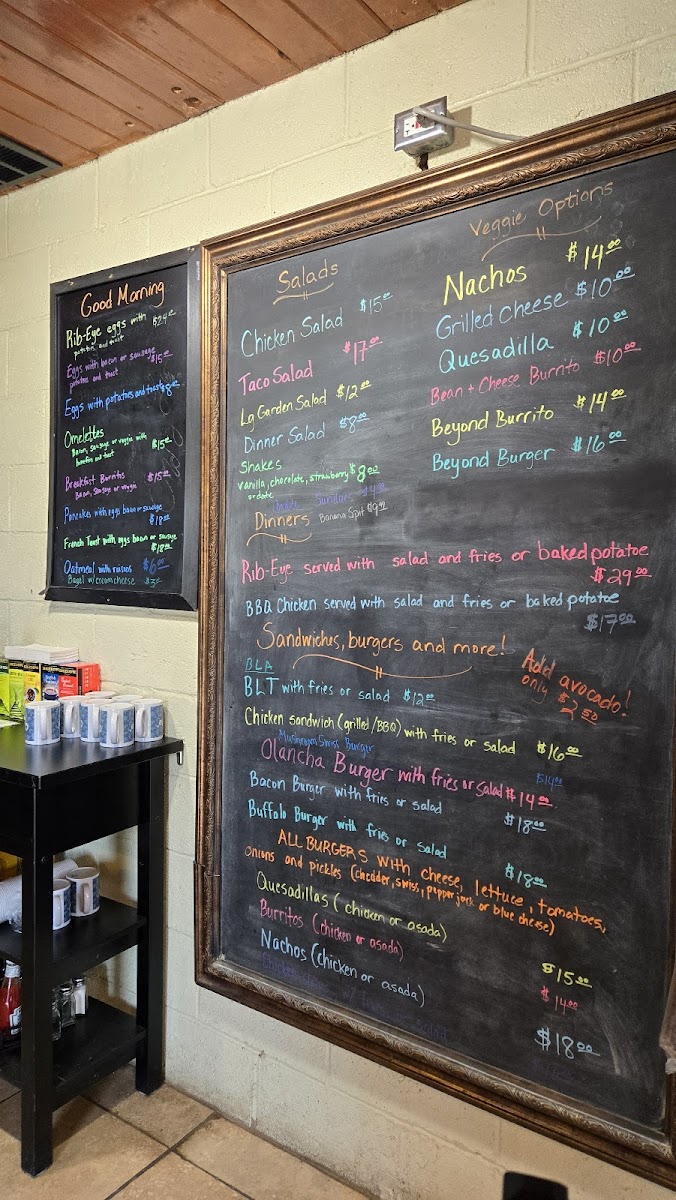 Good Morning
Rib-Eye eggs with $24.00
potatoes and toast
Eggs with bacon or sausage
potatoes and toast $15.00
Eggs with potatoes and toast $8.00
Omelettes
Bacon, sausage or veggie with $15.00
and toast
Breakfast Burritos $15.00
Bacon, Sausage or veggie
Pancakes with eggs bacon or sausage
$18.00
French Toast with eggs bacon or sausage
$18.00
Oatmeal with raisins $6.00
Bagel w/ creamcheese
Salads
Chicken Salad $15.00
Taco Salad $17.00
Lg Garden Salad $12.00
Dinner Salad $8.00
Shakes
vanilla, chocolate, strawberry $8.00
or date
Sundaes
Banana Split $9.00
Veggie Options
Nachos $14.00
Grilled Cheese $10.00
Quesadilla $10.00
Bean + Cheese Burrito $10.00
Beyond Burrito $14.00
Beyond Burger $16.00
Dinners
Rib-Eye served with salad and fries or baked potatoe
$29.00
BBQ Chicken served with salad and fries or baked potatoe
$17.00
Sandwiches, burgers and more!
Add avocado!
only $2.50
BLA
BLT with fries or salad $12.00
Chicken sandwich (grilled/BBQ) with fries or salad $16.00
Mushroom Swiss Burger $14.00
Olancha Burger with fries or salad $14.00
Bacon Burger with fries or salad $18.00
Buffalo Burger with fries or salad $18.00
ALL BURGERS with cheese, lettuce, tomatoes,
onions and pickles (chedder, swiss, pepper jack or blue cheese)
Quesadillas (chicken or asada) $15.00
Burritos (chicken or asada) $14.00
Nachos (chicken or asada) $18.00